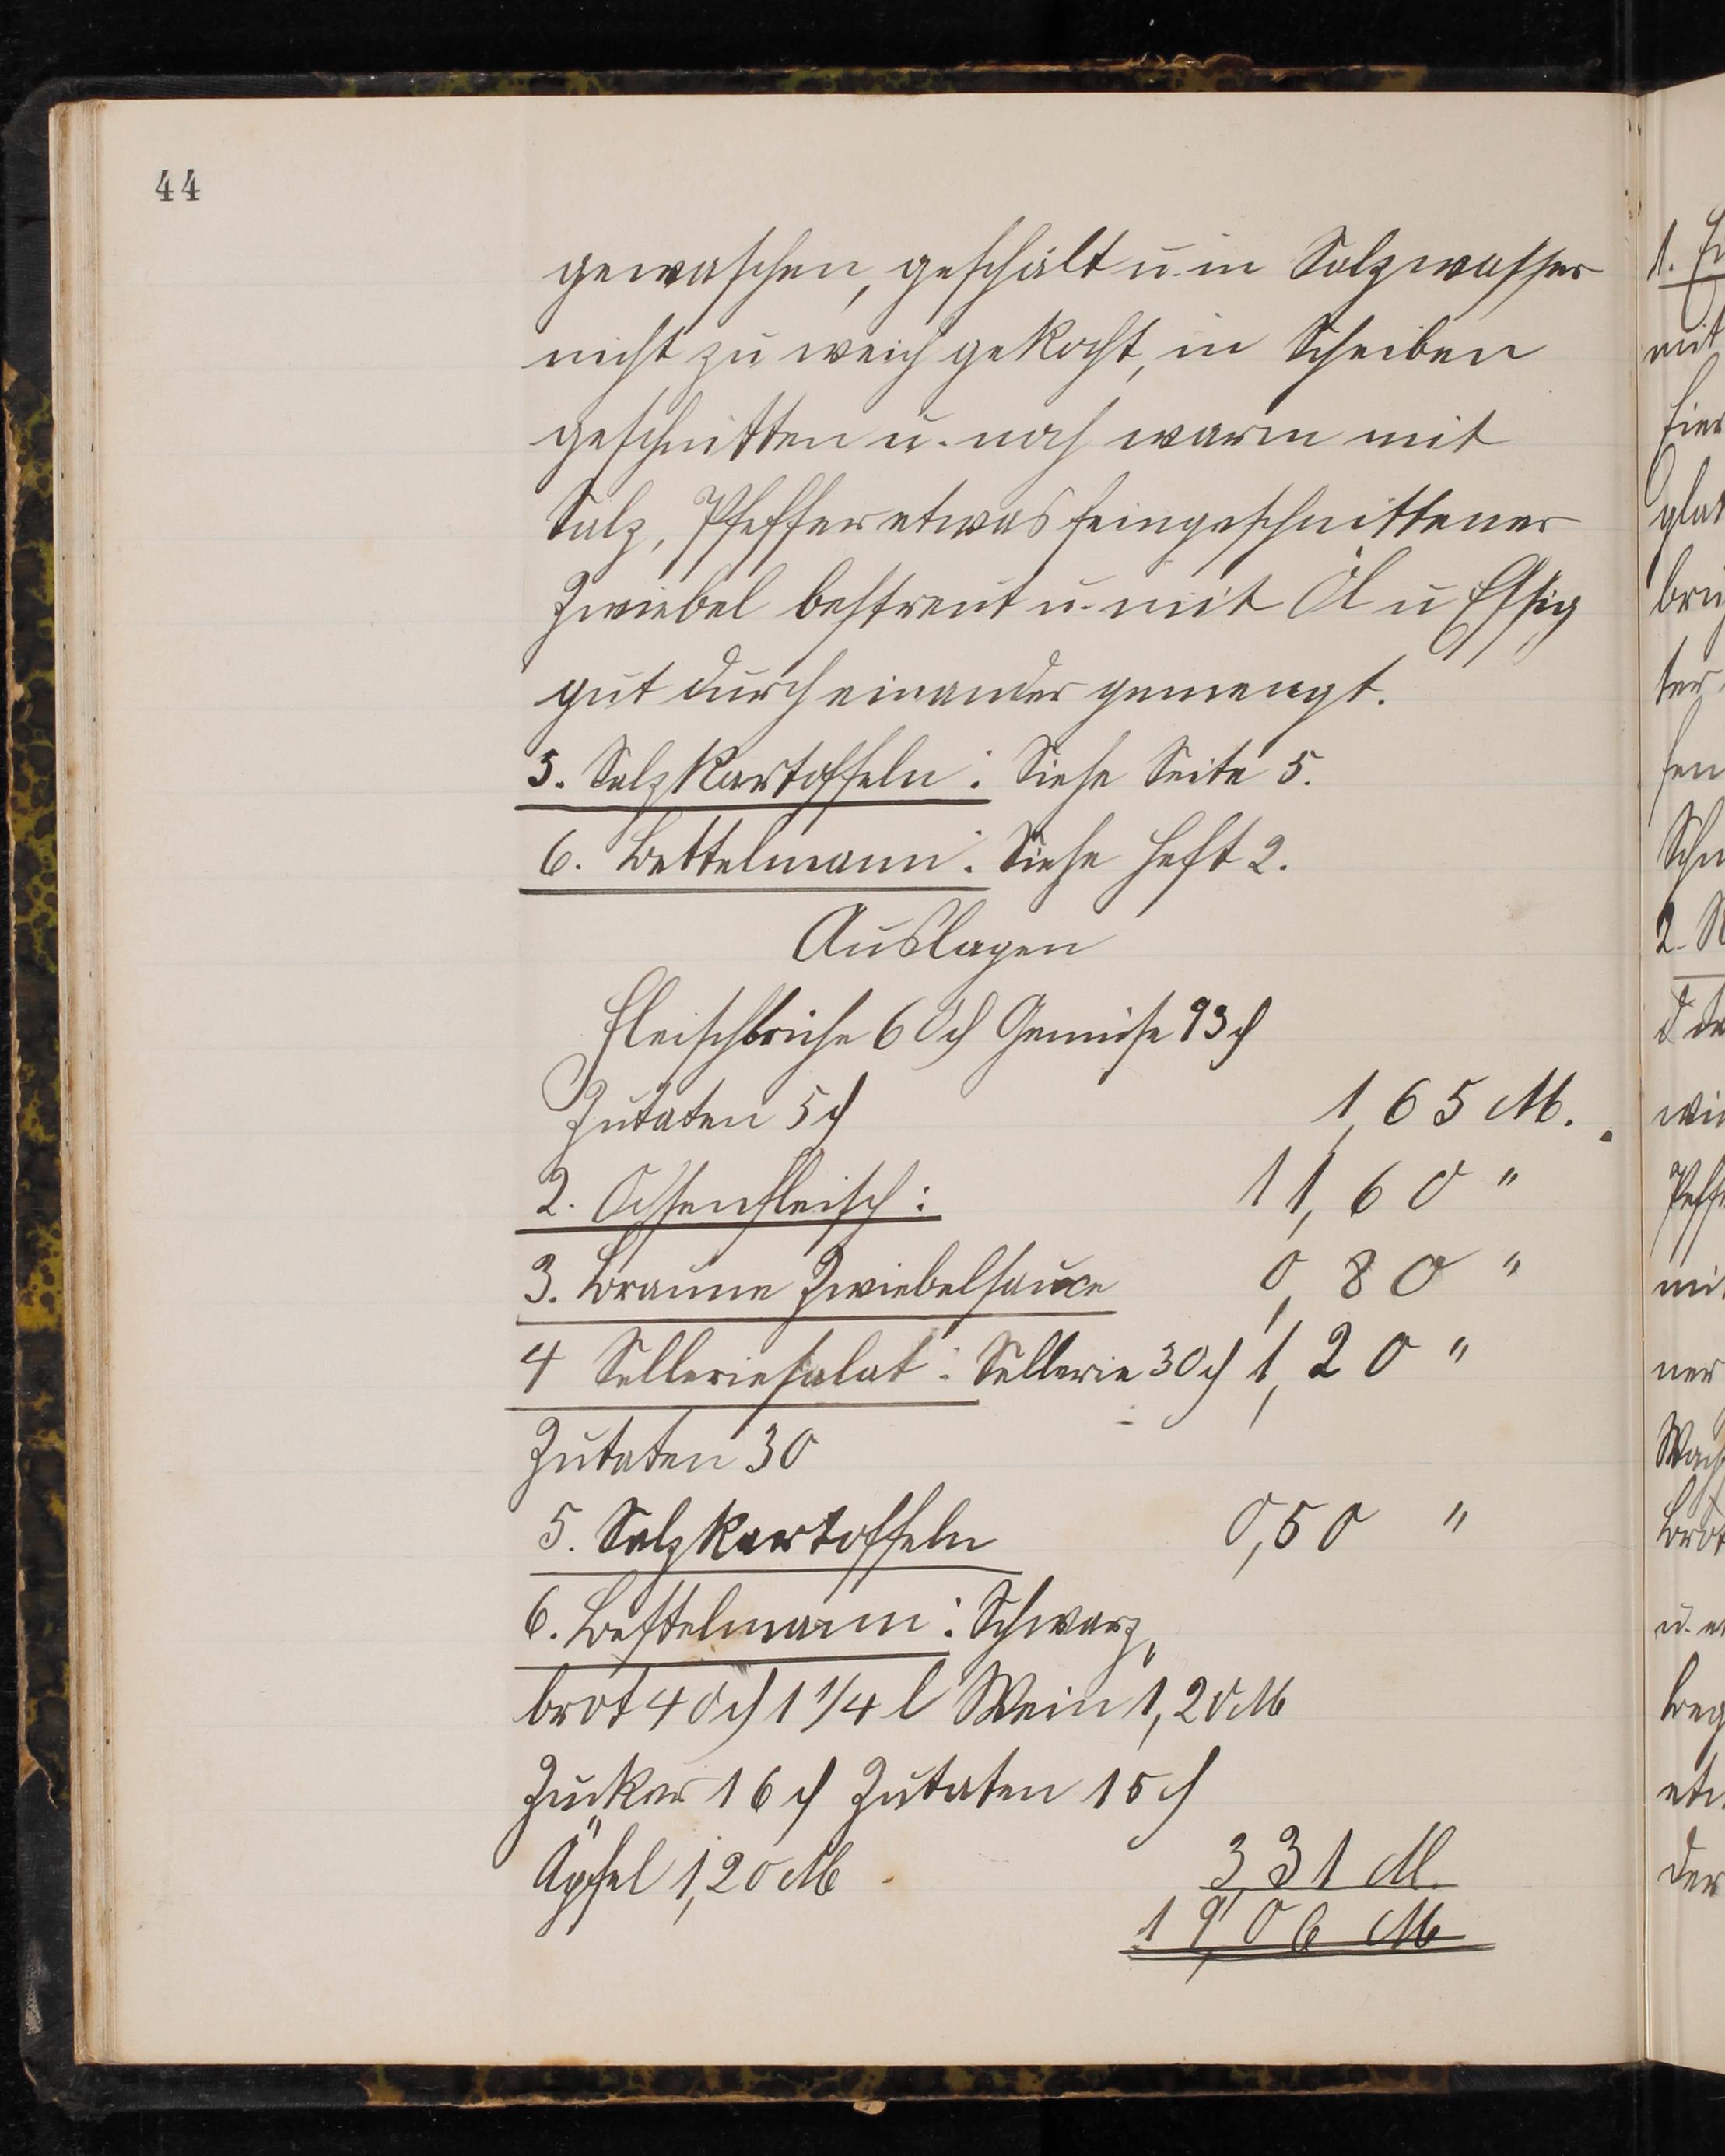 44
gewaschen, geschält u. in Salzwasser
nicht zu weich gekocht, in Scheiben
geschnitten u. noch warm mit
Salz, Pfeffer etwas feingeschnittener
Zwiebel bestreut u. mit Öl u Essig
gut durcheinander gemengt.
5. Salzkartoffeln: Siehe Seite 5.
6. Bettelmann: Siehe Heft 2.
Auslagen
Fleischbrühe 60 ₰ Gemüse 93 ₰
Zutaten 5 ₰ 1,65 M.
2. Ochsenfleisch: 11,60 "
3. Braune Zwiebelsauce 0,80 "
4 Selleriesalat: Sellerie 30 ₰ 1,20 "
Zutaten 30
5. Salzkartoffeln 0,50 "
6. Bettelmann: Schwarz„
brot 40 ₰ 1 1/4 l Wein 1,20 M
Zucker 16 ₰ Zutaten 15 ₰
Äpfel 1,20 M 3 31 M.
19,06 M
1.
mit
Eier
glat
ter
fen
Schn
2.
ner
u.
der